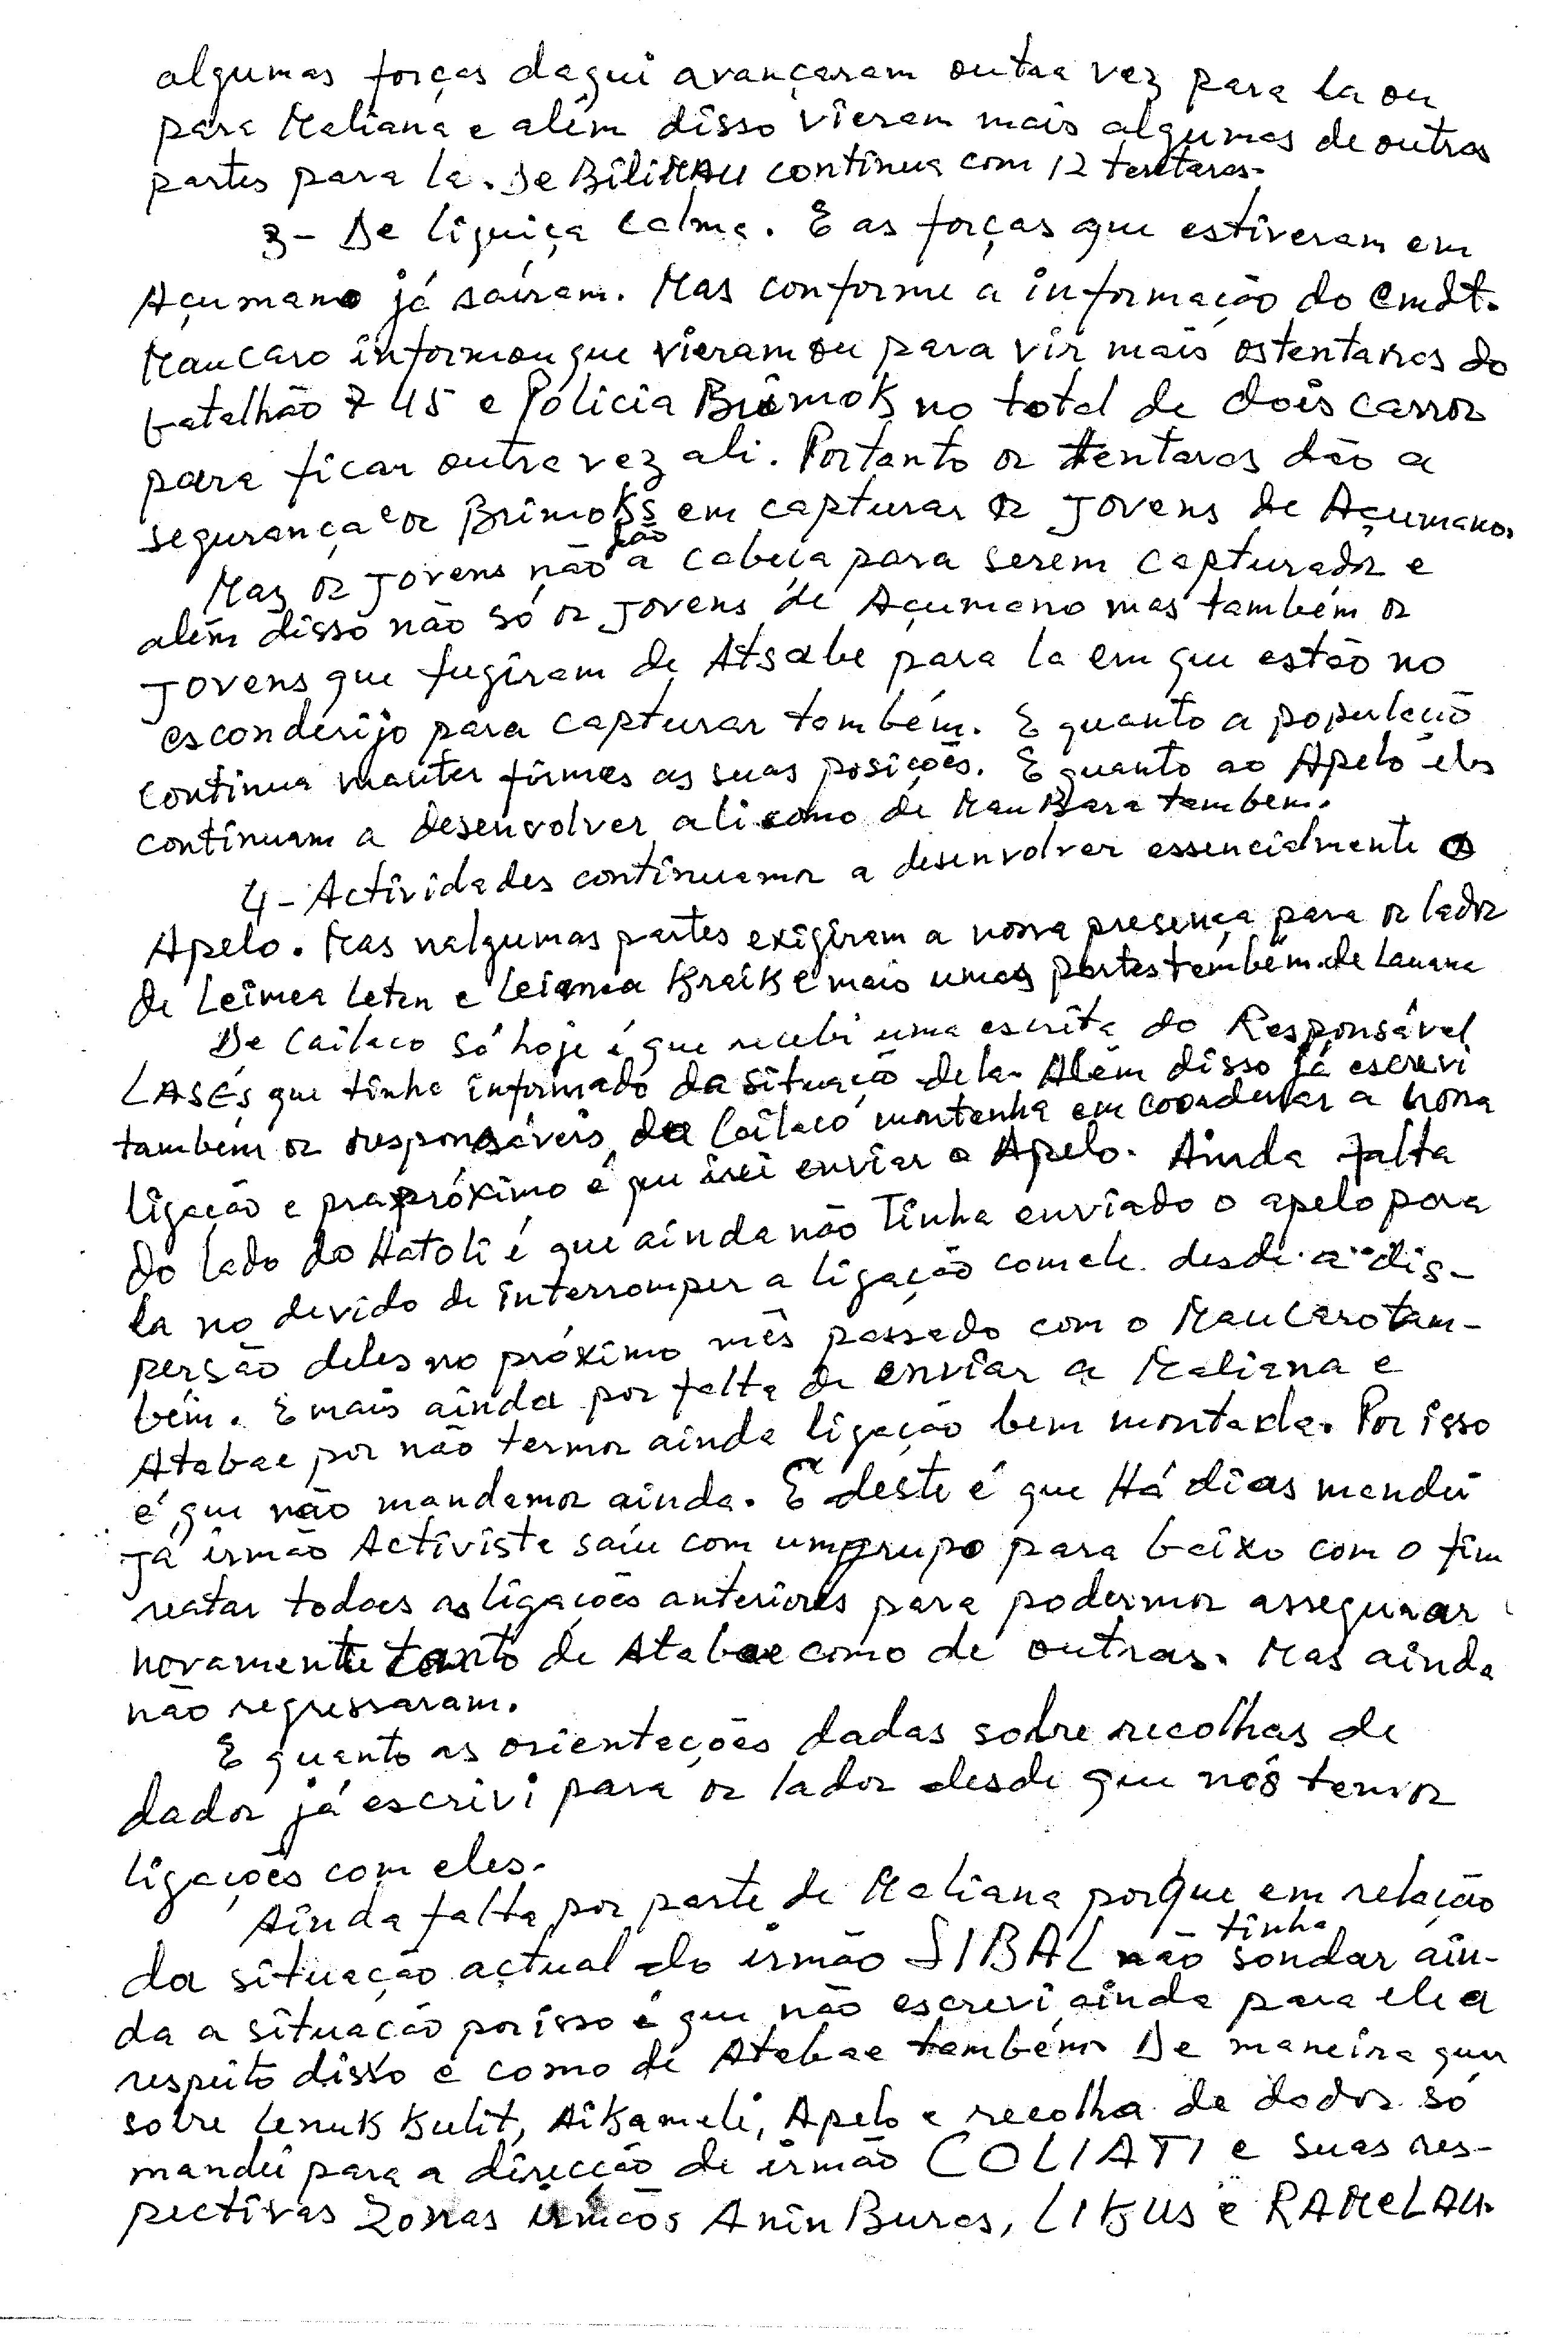 algumas forças daqui avançaram outra vez para la ou
para Maliana e além disso vieram mais algumas de outras
partes para la. De BiliMAU continua com 12 tentaras.
3- De liquiça calma. E as forças que estiveram em
Açumano já saíram. Mas conforme a informação do Cmdt.
Maucaro informou que vieram ou para vir mais os tentaras do
batalhão 745 e Polícia Brimok no total de dois carros
para ficar outra vez ali. Portanto os tentaras dão a
segurança e os Brimoks em capturar os Jovens de Açumano.
Mas os Jovens não dão a cabeça para serem capturados e
além disso não só os Jovens de Açumano mas também os
Jovens que fugiram de Atsabe para la em que estão no
esconderijo para capturar também. E quanto a população
continua manter firmes as suas posições. E quanto ao Apelo eles
continuam a desenvolver ali como de MauBara também.
4- Actividades continuamos a desenvolver essencialmente o
Apelo. Mas nalgumas partes exigiram a nossa presença para os lados
de Leimea leten e Leimea Kraik e mais umas partes também de Lauana
De Cailaco só hoje é que recebi uma escrita do Responsável
LASES que tinha informado da situação dela. Além disso já escrevi
também os responsáveis de Cailaco montanha em coordenar a nossa
ligação e pra próximo é que irei enviar o Apelo. Ainda falta
do lado do Hatoli é que ainda não Tinha enviado o apelo para
la no devido de interromper a ligação com ele desde a dis-
persão deles no próximo mês passado com o Maucaro tam-
bém. E mais ainda por falta de enviar a Maliana e
Atabae por não termos ainda ligação bem montada. Por isso
é que não mandamos ainda. E deste é que Há dias mandei
Já irmão Activista saiu com um grupo para baixo com o fim
reatar todoas as ligações anteriores para podermos assegurar
novamente tanto de Atabae como de outras. Mas ainda
não regressaram.
E quanto as orientações dadas sobre recolhas de
dados já escrivi para os lados desde que nós temos
ligações com eles.
Ainda falta por parte de Maliana porque em relação
da situação actual do irmão SIBAL não tinha sondar ain-
da a situação por isso é que não escrevi ainda para ele a
respeito disso e como de Atabae também. De maneira que
sobre lenuk kulit, Aikameli, Apelo e recolha de dados só
mandei para a direcção de irmão COLIATI e suas res-
pectivas Zonas irmãos Anin Buras, LIKUS e RAMELAU.